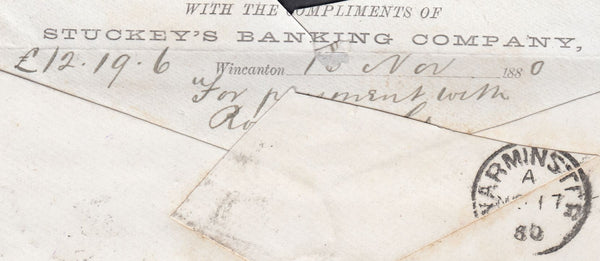 WITH THE COMPLIMENTS OF
STUCKEY'S BANKING COMPANY,
£12.19.6 Wincanton 15 Nov 1880
For payment with
WARMINSTER
A
17
80